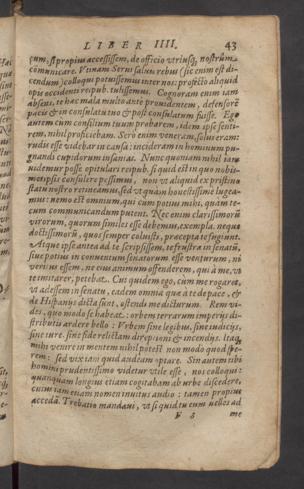 LIBER IIII. 43
tum, si propius accessissem, de officio vtriusq́, nostrûm
cōmunicare. Vtinam Serui saluis rebus (sic enim est di-
cendum) colloqui potuissemus inter nos: profectò aliquid
opis occidenti reipub. tulissemus. Cognoram enim iam
absens, te hæc mala multo ante prouidentem, defensorē
pacis & in consulatu tuo & post consulatum fuisse. Ego
autem cum consilium tuum probarem, idem ipse senti-
rem, nihil proficiebam. Serò enim veneram, solus eram:
rudis esse videbar in causa: incideram in hominum pu-
gnandi cupidorum insanias. Nunc quoniam nihil iam
videmur posse opitulari reipub. si quid est in quo nobis-
metipsis consulere possimus, non vt aliquid ex pristino
statu nostro retineamus, sed vt quàm honestissimè lugea-
mus: nemo est omnium, qui cum potius mihi, quàm te-
cum communicandum putem. Nec enim clarissimorū
virorum, quorum similes esse debemus, exempla, neque
doctissimorū, quos semper coluisti, præcepta te fugiunt.
Atque ipse antea ad te scripsissem, te frustra in senatū,
siue potius in conuentum senatorum esse venturum, ni
veritus essem, ne eius animum offenderem, qui à me, vt
te imitarer, petebat. Cui quidem ego, cum me rogaret,
vt adessem in senatu, eadem omnia quæ à te de pace, &
de Hispanijs dicta sunt, ostendi me dicturum. Rem vi-
des, quo modo se habeat: orbem terrarum imperijs di-
stributis ardere bello: Vrbem sine legibus, sine iudicijs,
sine iure, sine fide relictam direptioni & incendijs. Itaq́,
mihi venire in mentem nihil potest non modo quod spe-
rem: sed vix iam quid audeam optare. Sin autem tibi
homini prudentissimo videtur vtile esse, nos colloqui:
quanquam longius etiam cogitabam ab vrbe discedere,
cuius iam etiam nomen inuitus audio: tamen propius
accedā. Trebatio mandaui, vt si quid tu eum velles ad
F 3 me